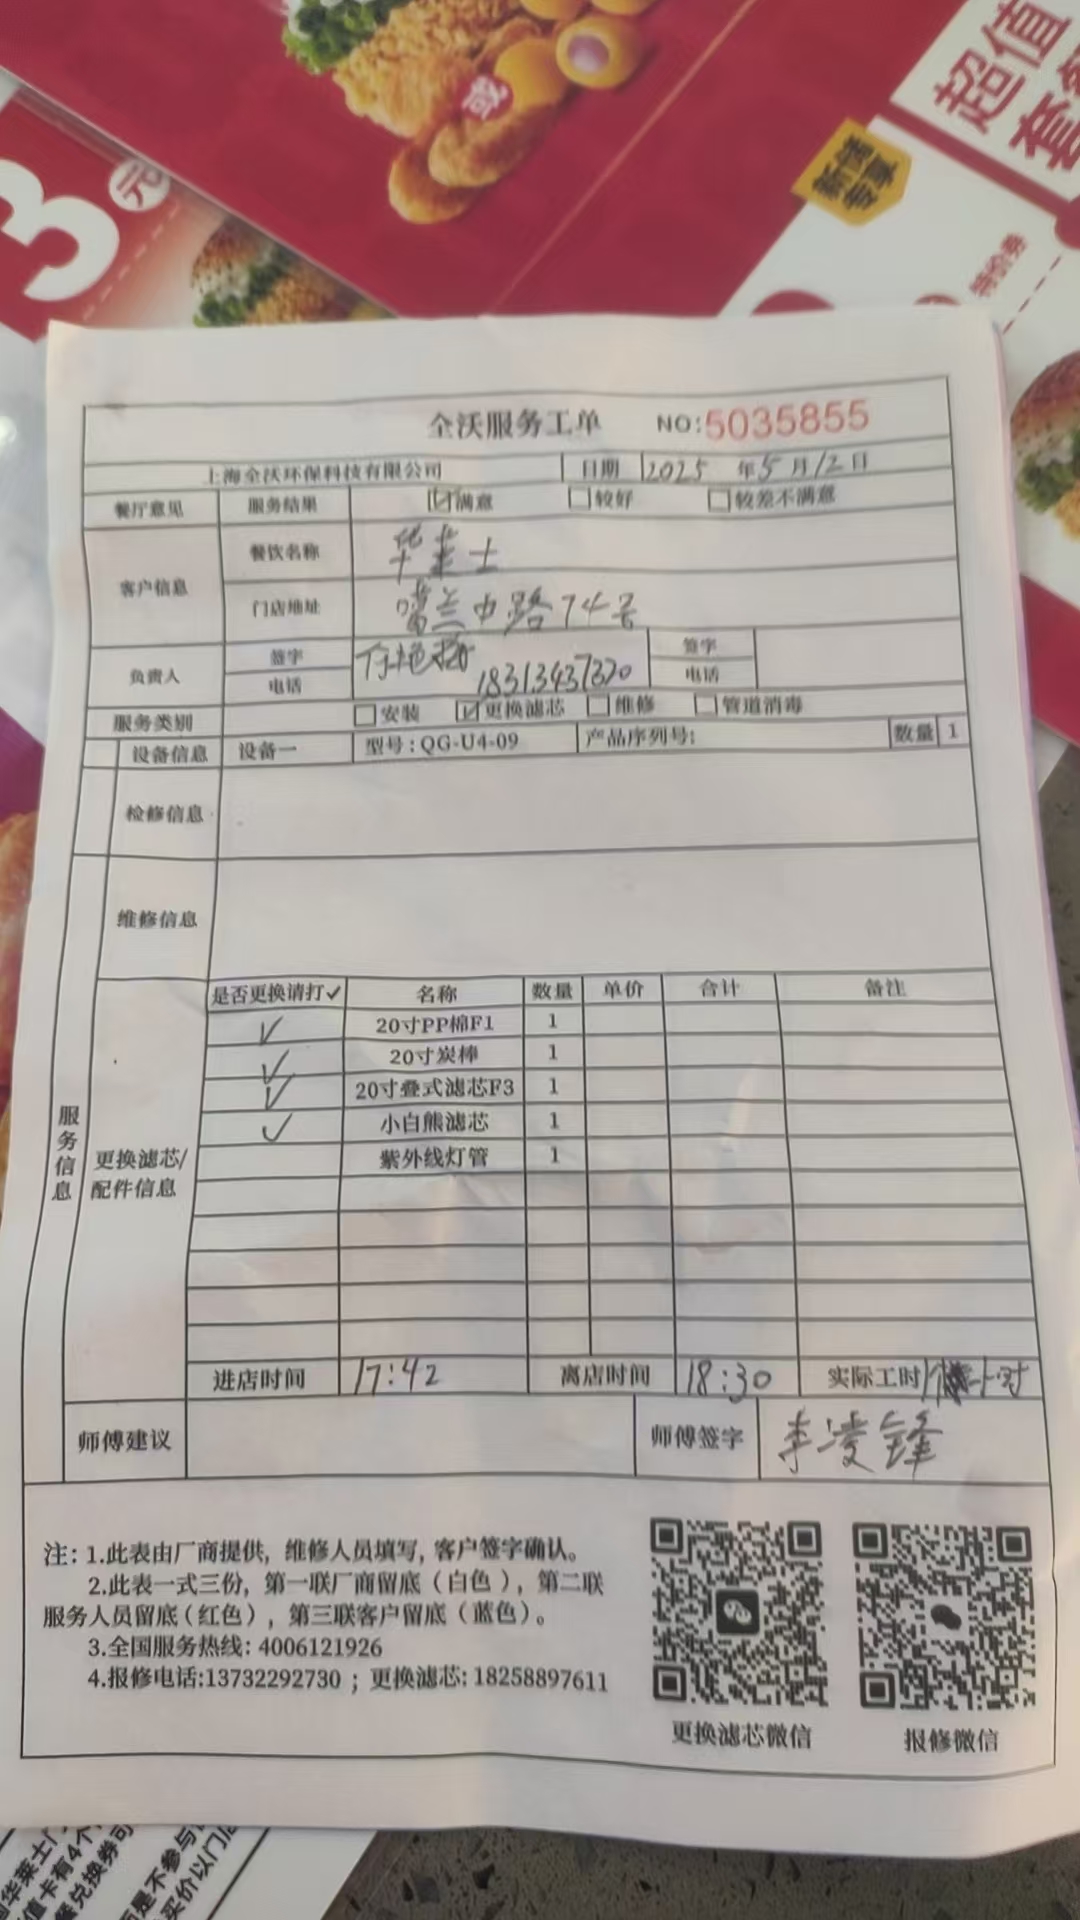 或
3元
超值
套
特价券
全沃服务工单 NO:5035855
上海全沃环保科技有限公司 日期 2025 年 5 月 12 日
餐厅意见 服务结果 ☑满意 □较好 □较差不满意
客户信息 餐饮名称 华莱士
门店地址 噶兰中路74号
负责人 签字 签字
电话 18313437370 电话
服务类别 □安装 ☑更换滤芯 □维修 □管道消毒
设备信息 设备一 型号:QG-U4-09 产品序列号: 数量 1
检修信息
维修信息
服务信息
更换滤芯/
配件信息
是否更换请打✓ 名称 数量 单价 合计 备注
✓ 20寸PP棉F1 1
✓ 20寸炭棒 1
✓ 20寸叠式滤芯F3 1
✓ 小白熊滤芯 1
紫外线灯管 1
进店时间 17:42 离店时间 18:30 实际工时 小时
师傅建议 师傅签字 李凌锋
注: 1.此表由厂商提供, 维修人员填写, 客户签字确认。
2.此表一式三份, 第一联厂商留底(白色), 第二联
服务人员留底(红色), 第三联客户留底(蓝色)。
3.全国服务热线: 4006121926
4.报修电话:13732292730 ; 更换滤芯: 18258897611
更换滤芯微信 报修微信